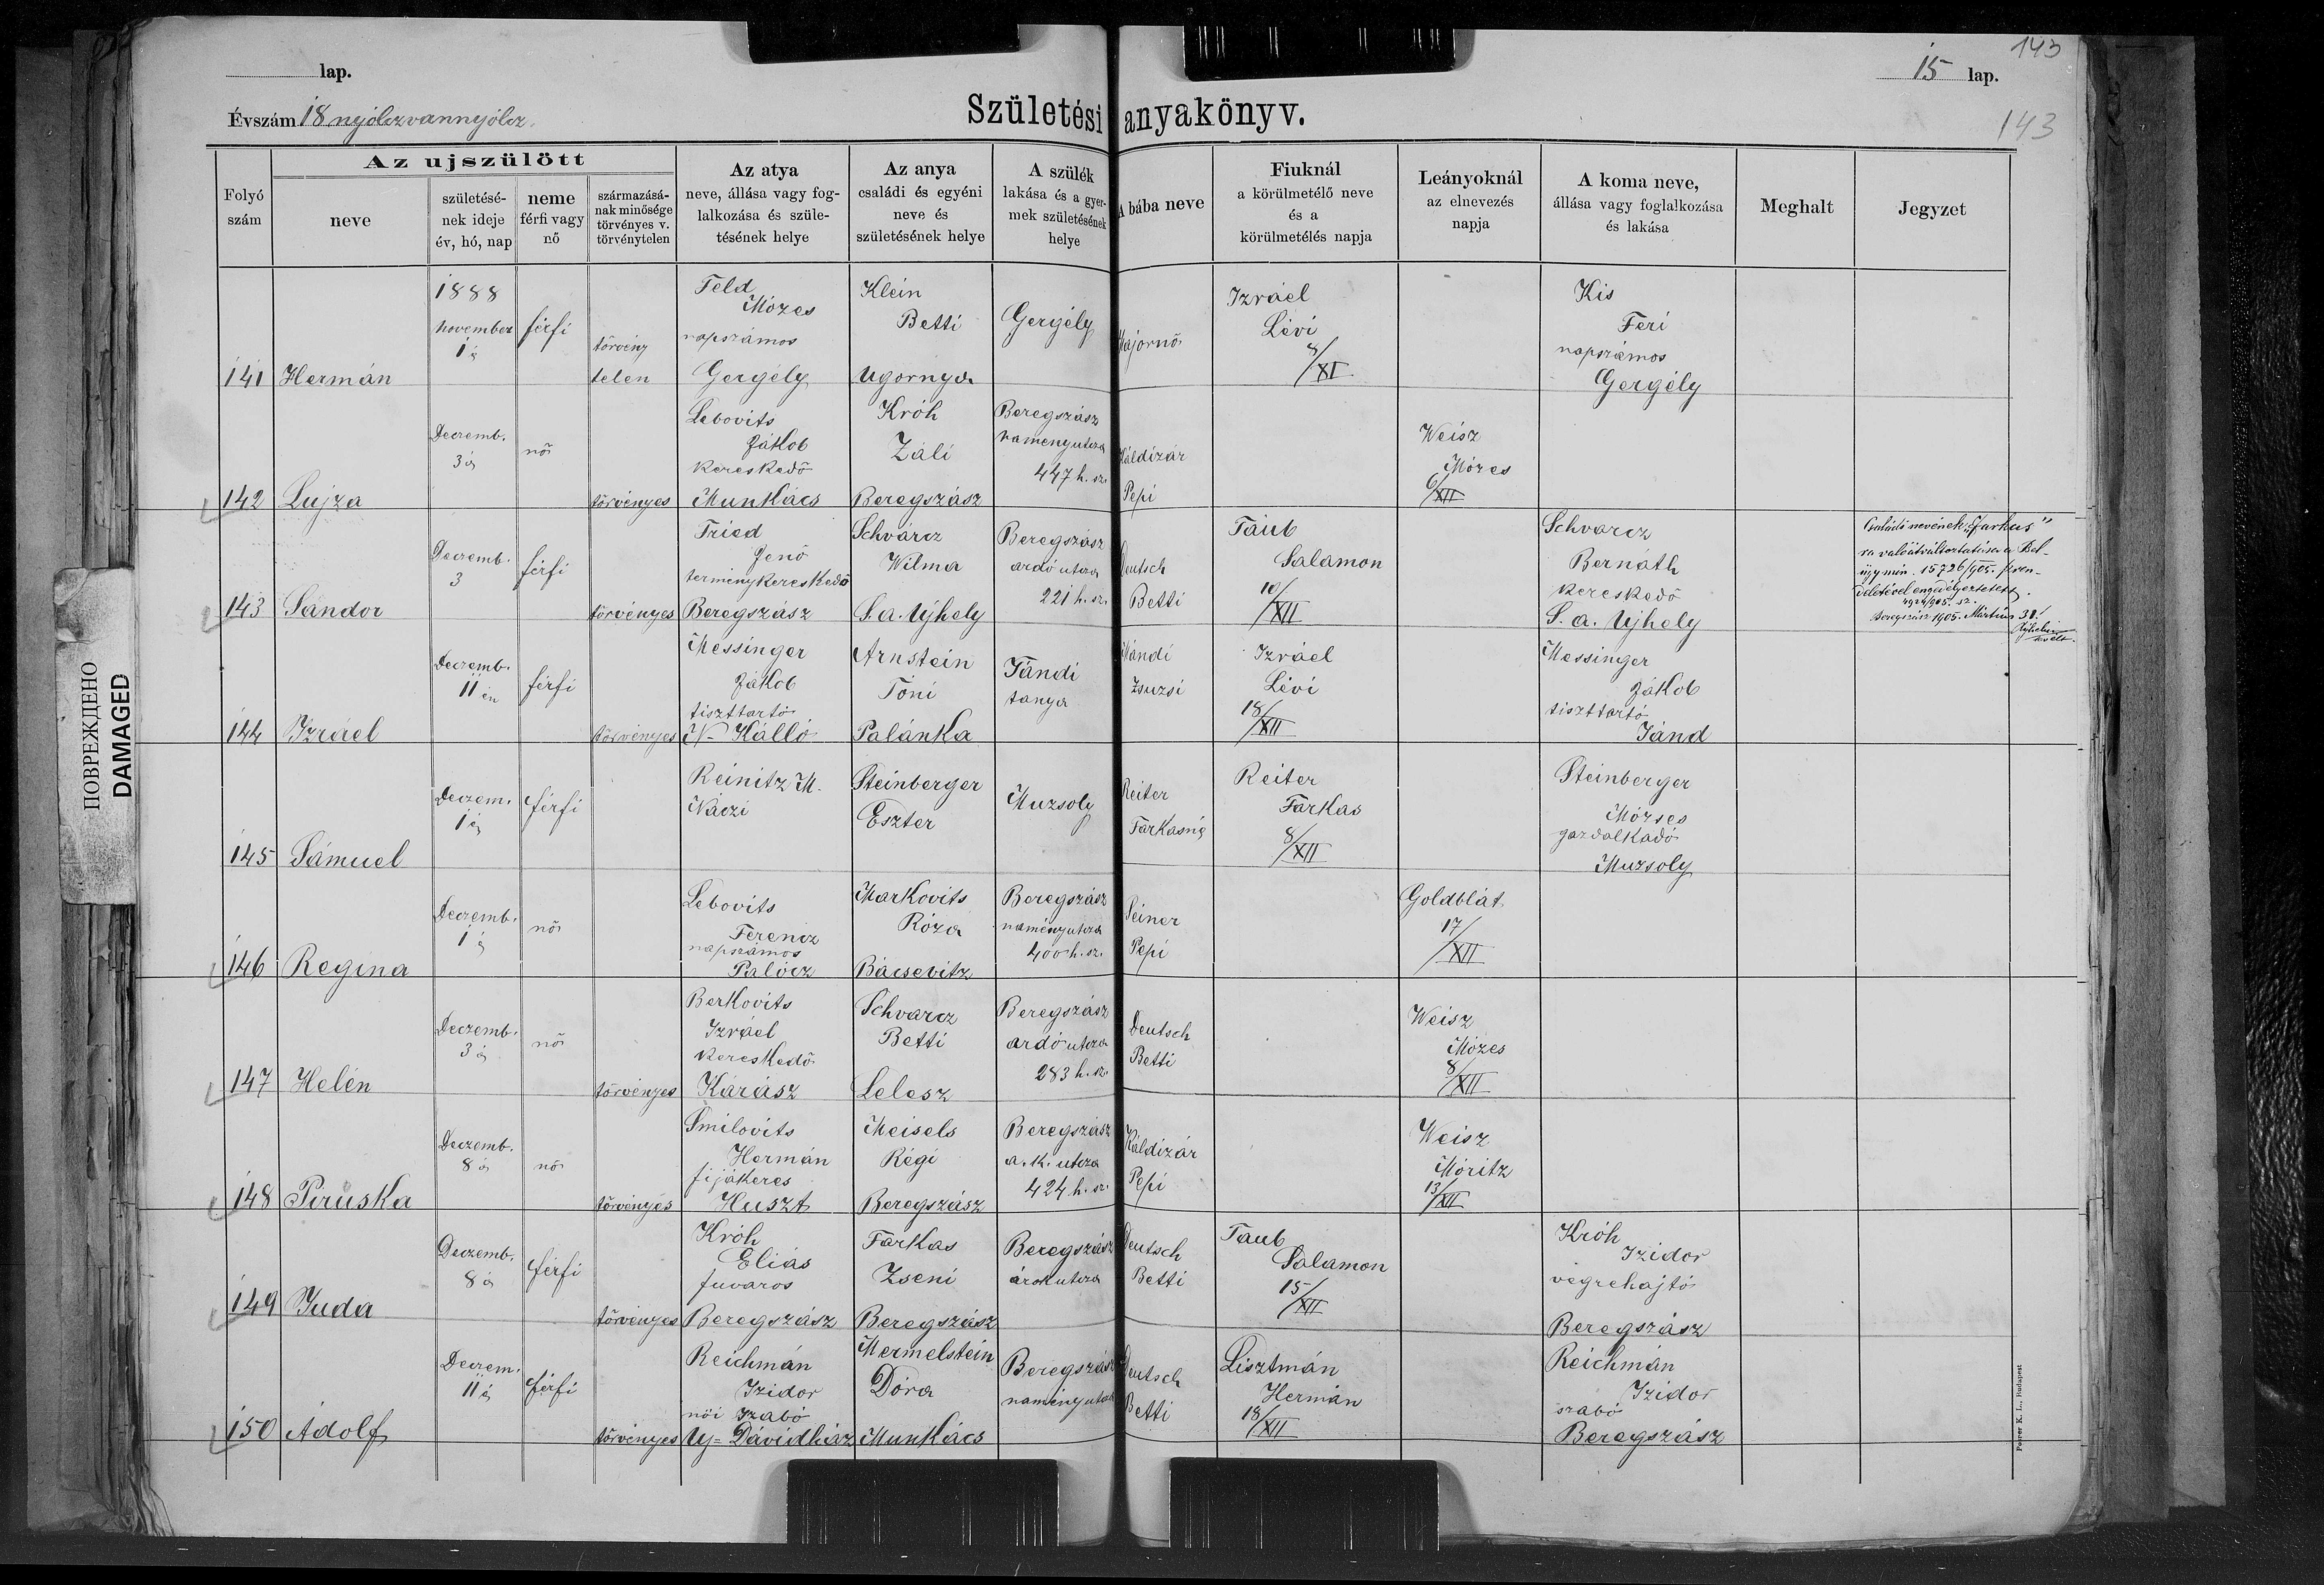 lap.
15 lap.
143
143
Évszám 18 nyólczvannyólcz.
Születési anyakönyv.
Folyó szám
Az ujszülött
neve
születésé-
nek ideje
év, hó, nap
neme
férfi vagy
nő
származásá-
nak minősége
törvényes v.
törvénytelen
Az atya
neve, állása vagy fog-
lalkozása és szüle-
tésének helye
Az anya
családi és egyéni
neve és
születésének helye
A szülék
lakása és a gyer-
mek születésének
helye
A bába neve
Fiuknál
a körülmetélő neve
és a
körülmetélés napja
Leányoknál
az elnevezés
napja
A koma neve,
állása vagy foglalkozása
és lakása
Meghalt
Jegyzet
141 Hermán
1888
november
1 én
férfi
törvény
telen
Feld
Mózes
napszámos
Gergély
Klein
Betti
Ugornya
Gergély
Májornő
Izráel
Lévi
8/XI
Kis
Feri
napszámos
Gergély
142 Lujza
Decemb.
3 án
nő
törvényes
Lebovits
Jákob
kereskedő
Munkács
Króh
Záli
Beregszász
Beregszász
namény utcza
447 h. sz.
Káldizár
Pepi
Weisz
Mózes
6/XII
143 Sándor
Decemb.
3
férfi
törvényes
Fried
Jenő
terménykereskedő
Beregszász
Schvárcz
Wilma
S. a. Ujhely
Beregszász
ardó utcza
221 h. sz.
Deutsch
Betti
Taub
Salamon
10/XII
Schvarcz
Bernáth
kereskedő
S. a. Ujhely
Családi nevének „Farkas"
ra való átváltoztatása a Bel-
ügymin. 15726/905. sz ren-
deletével engedélyeztetett.
4924/905. sz.
Beregszász 1905. Mártius 31.
144 Izráel
Decemb.
11 én
férfi
törvényes
Messinger
Jákob
tiszttartó
N- Kálló
Arnstein
Tóni
Palánka
Jándi
tanya
Mándi
Zsuzsi
Izráel
Lévi
18/XII
Messinger
Jákob
tiszttartó
Jánd
145 Sámuel
Deczem.
1 én
férfi
Reinitz M.
Náczi
Steinberger
Eszter
Muzsoly
Reiter
Farkasné
Reiter
Farkas
8/XII
Steinberger
Mózses
gazdalkadó
Muzsoly
146 Regina
Deczemb.
1 én
nő
Lebovits
Ferencz
napszámos
Palócz
Markovits
Róza
Bácsevitz
Beregszász
namény utcza
400 h. sz.
Seiner
Pepi
Goldblát
17/XII
147 Helén
Deczemb.
3 án
nő
törvényes
Berkovits
Izráel
kereskedő
Kárász
Schvarcz
Betti
Lelesz
Beregszász
ardó utcza
283 h. sz.
Deutsch
Betti
Weisz
Mózes
8/XII
148 Piruska
Deczemb.
8 án
nő
törvényes
Smilovits
Hermán
fijákeres
Huszt
Meisels
Régi
Beregszász
Beregszász
a. k. utcza
424 h. sz.
Káldizár
Pepi
Weisz
Móritz
13/XII
149 Juda
Deczemb.
8 án
férfi
törvényes
Króh
Eliás
fuvaros
Beregszász
Farkas
Zseni
Beregszász
Beregszász
árok utcza
Deutsch
Betti
Taub
Salamon
15/XII
Króh
Izidor
végrehajtó
Beregszász
150 Adolf
Deczem.
11 én
férfi
törvényes
Reichmán
Izidor
női szabó
Uj= Dávidház
Mermelstein
Dóra
Munkács
Beregszász
namény utcza
Deutsch
Betti
Lisztmán
Hermán
18/XII
Reichmán
Izidor
szabó
Beregszász
ПОВРЕЖДЕНО
DAMAGED